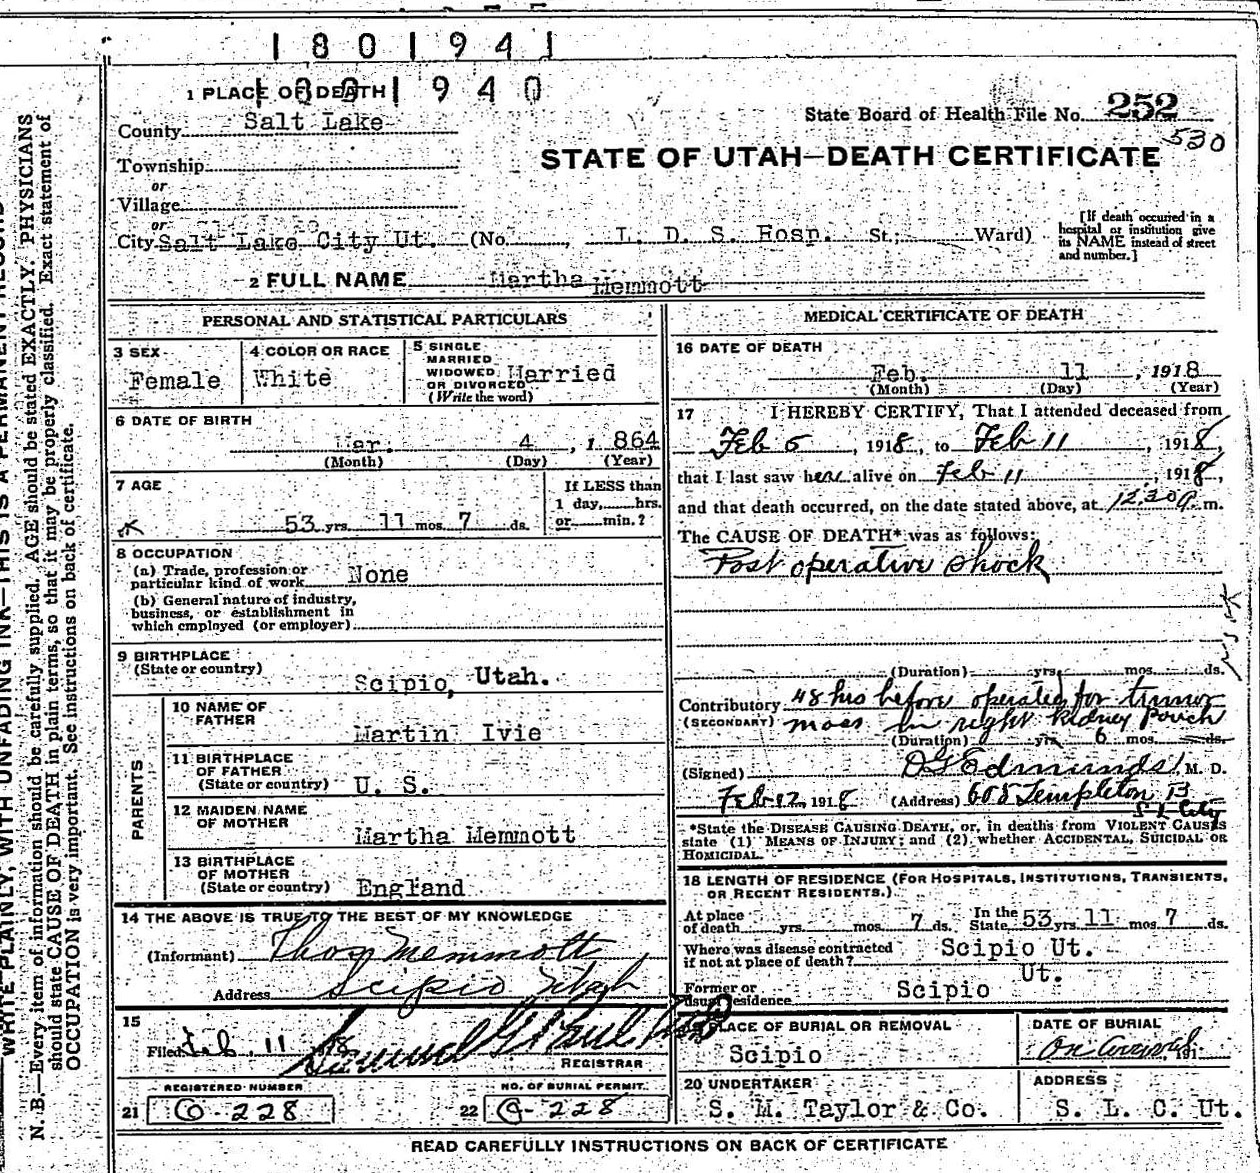 1801941
1801940
1 PLACE OF DEATH
County Salt Lake
State Board of Health File No. 252
530
Township
or
STATE OF UTAH—DEATH CERTIFICATE
Village
or
City Salt Lake City Ut. (No. , L. D. S. Hosp. St.; Ward)
[If death occurred in a
hospital or institution give
its NAME instead of street
and number.]
2 FULL NAME Martha Memmott
PERSONAL AND STATISTICAL PARTICULARS
3 SEX
Female
4 COLOR OR RACE
White
5 SINGLE
MARRIED
WIDOWED
OR DIVORCED
(Write the word)
Married
6 DATE OF BIRTH
Mar. 4, 1864
(Month) (Day) (Year)
7 AGE
53 yrs. 11 mos. 7 ds.
If LESS than
1 day, hrs.
or min.?
8 OCCUPATION
(a) Trade, profession or
particular kind of work None
(b) General nature of industry,
business, or establishment in
which employed (or employer)
9 BIRTHPLACE
(State or country)
Scipio, Utah.
PARENTS
10 NAME OF
FATHER
Martin Ivie
11 BIRTHPLACE
OF FATHER
(State or country) U. S.
12 MAIDEN NAME
OF MOTHER
Martha Memmott
13 BIRTHPLACE
OF MOTHER
(State or country) England
14 THE ABOVE IS TRUE TO THE BEST OF MY KNOWLEDGE
(Informant) Thos Memmott
Address Scipio Utah
15
Filed Feb. 11 1918 Samuel G Paul
REGISTRAR
REGISTERED NUMBER
21 G-228
NO. OF BURIAL PERMIT
22 G-228
MEDICAL CERTIFICATE OF DEATH
16 DATE OF DEATH
Feb. 11, 1918
(Month) (Day) (Year)
17 I HEREBY CERTIFY, That I attended deceased from
Feb 5, 1918, to Feb 11, 1918,
that I last saw her alive on Feb 11, 1918,
and that death occurred, on the date stated above, at 12:30 P. m.
The CAUSE OF DEATH* was as follows:
Post operative shock
(Duration) yrs. mos. ds.
Contributory 48 hrs before operated for tumor
(SECONDARY) mass in right kidney pouch
(Duration) yrs. 6 mos. ds.
(Signed) D G Edmunds, M. D.
Feb 12, 1918 (Address) 608 Templeton B
S L City
*State the DISEASE CAUSING DEATH, or, in deaths from VIOLENT CAUSES
state (1) MEANS OF INJURY; and (2) whether ACCIDENTAL, SUICIDAL OR
HOMICIDAL.
18 LENGTH OF RESIDENCE (FOR HOSPITALS, INSTITUTIONS, TRANSIENTS,
OR RECENT RESIDENTS.)
At place
of death yrs. mos. 7 ds.
In the
State 53 yrs. 11 mos. 7 ds.
Where was disease contracted
if not at place of death? Scipio Ut.
Former or
usual residence Scipio Ut.
19 PLACE OF BURIAL OR REMOVAL
Scipio
DATE OF BURIAL
On Arrival 191
20 UNDERTAKER
S. M. Taylor & Co.
ADDRESS
S. L. C. Ut.
READ CAREFULLY INSTRUCTIONS ON BACK OF CERTIFICATE
WRITE PLAINLY, WITH UNFADING INK—THIS IS A PERMANENT RECORD
N. B.—Every item of information should be carefully supplied. AGE should be stated EXACTLY. PHYSICIANS
should state CAUSE OF DEATH in plain terms, so that it may be properly classified. Exact statement of
OCCUPATION is very important. See instructions on back of certificate.